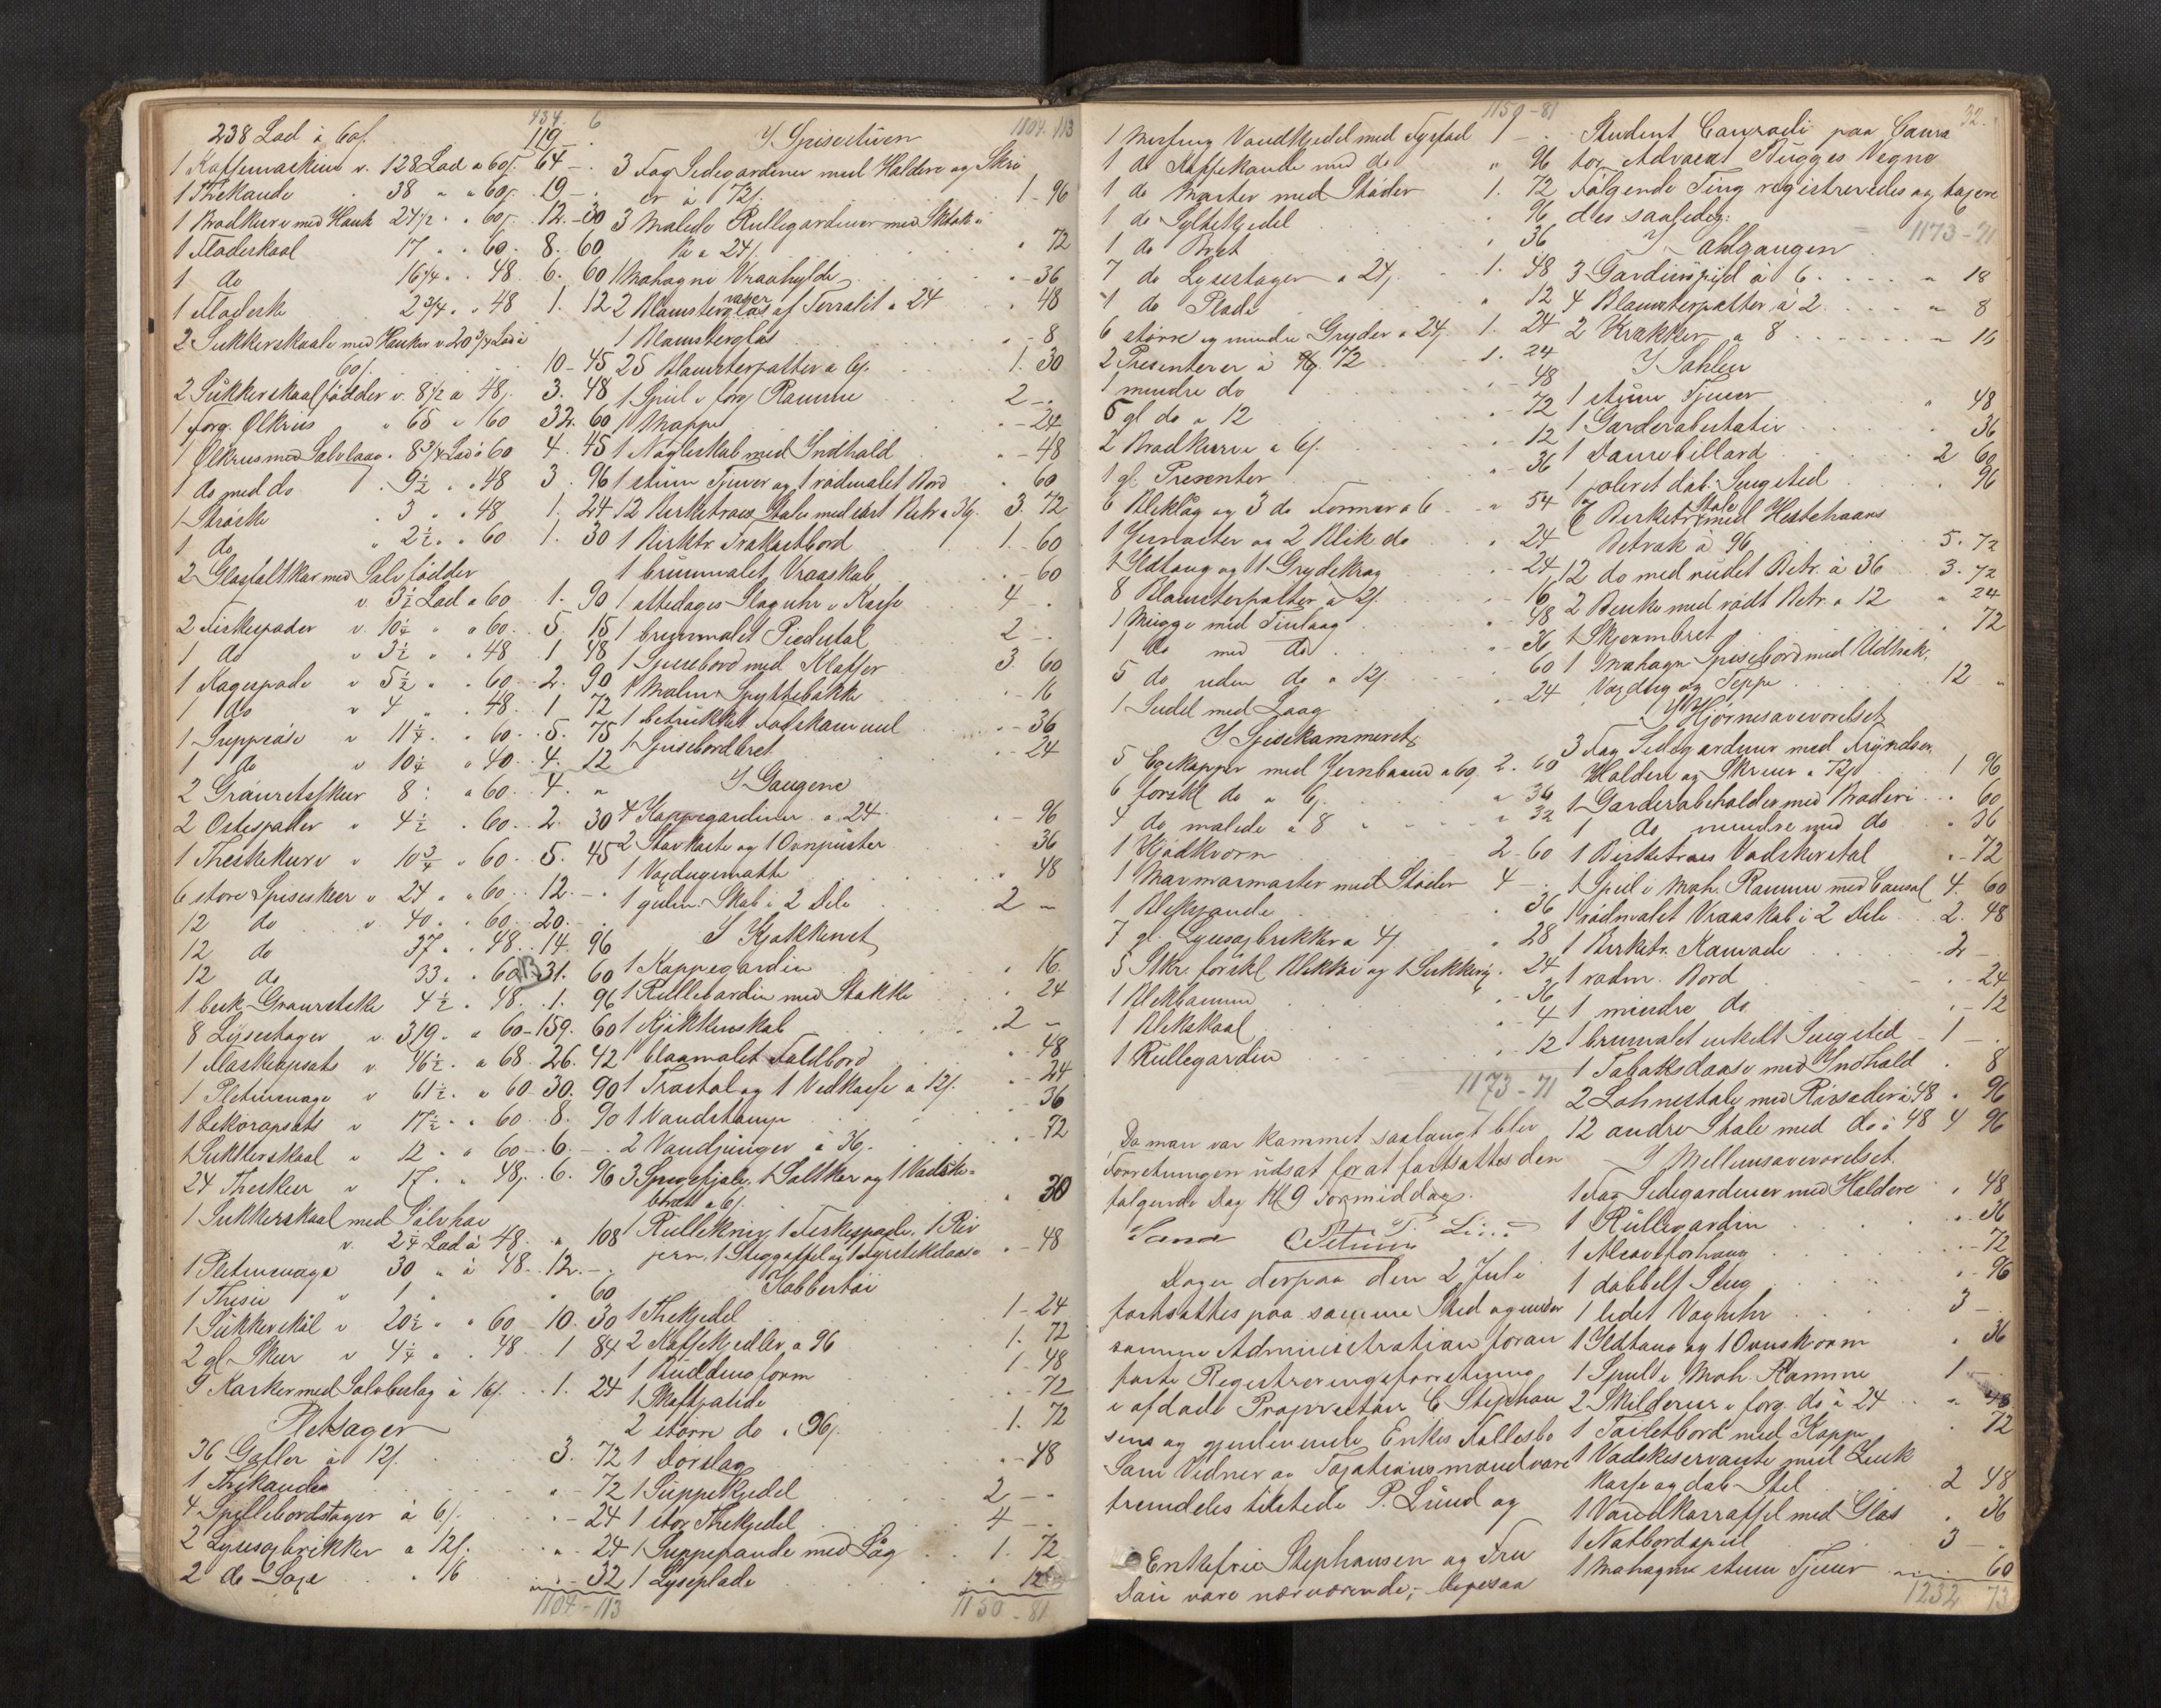 434. 6
238 Lod à 60ſ. 119 .
1 Kaffemaskine v. 128 Lod a 60ſ. 64 - .
1 Thekande . 38 " a 60ſ. 19 - .
1 Brødkurv med Hank 24 1/2 " . 60ſ. 12. - 30
1 Flødeskaal 17 " . 60. 8. 60
1 do 16 1/4 . . 48 6. 60
1 Flødeske 2 3/4 . . 48 1. 12
2 Sukkerskaale med Hanker v. 20 3/4 Lod à
60ſ. 10 - 45
2 Sukkerskaalfødder v. 8 1/2 a 48ſ. 3. 48
1 forg. Ølkrus " 65 a 60 32. 60
1 Ølkrus med Sølvlaag . 8 3/4 Lod à 60 4. 45
1 do med do . 9 1/2 . . 48 3. 96
1 Strøske . 3 . . 48 1. 24
1 do " 2 1/2 . . 60 1. 30
2 Glassaltkar med Sølvfødder
v. 3 1/2 Lod a 60 1. 90
2 Fiskespader v. 10 1/4 " a 60. 5. 15
1 do v 3 1/2 " . 48 1 48
1 Kagespade v 5 1/2 . . 60. 2. 90
1 do v 4 " . 48. 1 72
1 Suppeøse v 11 1/4 . . 60. 5. 75
1 do v 10 1/4 . 40. 4. 12
2 Grønretskeer 8 : a 60. 4. "
2 Ostespader v 4 1/2 . 60. 2. 30
1 Theskekurv v 10 3/4 . 60. 5. 45
6 store Spiseskeer v 24 . a 60. 12. - .
12 do v. 40. . 60. 20. .
12 do 37. . 48. 14. 96
12 do 33. . 60. 31. 60
1 beck Grønretske 4 1/2 . 48. 1. 96
8 Lysestager v. 319. a 60 - 159. 60
1 Flaskeopsats v. 46 1/2 . a 68. 26. 42
1 Pletmenage v 61 1/2 . a 60. 30. 90
1 Likøropsats v 17 1/2 . . 60. 8. 90
1 Sukkerskaal v 12 . . 60 - 6. - .
24 Theskeer v 17. . 48ſ. 6. 96
1 Sukkerskaal med Sølvhav
v. 2 1/4 Lod à 48. " 108
1 Pletmenage 30 " à 48. 12. - .
1 Thesie v 1 " " 60
1 Sukkerskål v 20 1/2 . . 60 10. 30
2 gl Skeer v 4 1/4 . . 48 1 84
9 Karker med Sølvbeslag à 16ſ. . 1. 24
Pletsager
36 Gafler à 12ſ. 3. 72
1 Thekande " - 72
4 Spillebordstager à 6ſ. . - 24
2 Lysesaxbrikker a 12ſ. . - 24
2 do Saxe . . 16 . - 32
1104 - 113
1104. 113
I Spisestuen
3 Fag Sidegardiner med Holdere og Skru
er à 72ſ. 1 - 96
3 Malede Rullegardiner med Stok a
24ſ. . 72
1 Mahogni Vraahylde . - 36
2 Blomstervaser af Terralit a 24 . 48
1 Blomsterglas . - 8
25 Blomsterpotter a 6ſ. 1. 30
1 Speil v forg Ramme 2 - .
1 Mappe . - 24
1 Nøgleskab med Indhold . - 48
1 stum Tjener og 1 rødmalet Bord . 60
12 Birketræes Stole med rødt Betr a 36. 3. 72
1 Birktr. Frokostbord 1. - 60
1 brunmalet Vraaskab . - 60
1 ottedages Slaguhr v Kasse 4 - .
1 brunmalet Piedestal 2 - .
1 Spisebord med Klaffer 3. 60
1 Malm Spyttebakke . - 16
1 betrukket Fodskammel . - 36
1 Spisebordbret . - 24
I Gangene
4 Kappegardiner a 24 . - 96
2 Støvkoste og 1 Ovnpuster . 36
1 Voxdugsmatte . 48
1 gulm. Skab i 2 Dele 2 -
I Kjøkkenet
1 Kappegardin . 16
1 Rullegardin med Stokke . 24
1 Kjøkkenskab 2 -
1 blaamalet Foldbord . 48
1 Træstol og 1 Vedkasse a 12ſ. . - 24
1 Vandstamp . - 36
2 Vandspænger à 36. . - 72
3 Spegefjæle, 1 Saltkar og 1
brett a 6ſ. . 30
1 Rullekniv, 1 Fiskespade, 1 Riv
jern, 1 Steggaffel og 1 Fyrstikdaase . - 48
Kobbertøi
1 Thekjedel 1 - 24
2 Kaffekjedler a 96 1. 72
1 Buddingform 1 - 48
1 Skaftpande . - 72
2 større do . 96ſ. 1. 72
1 Dørslag . - 48
1 Suppekjedel 2 - .
1 stor Thekjedel 4 - .
1 Suppepande med Låg 1. 72
1 Lyseplade . 12
1150 - 81
1150 - 81
1 Messing Vandkjedel med Fyrfad 1 - .
1 do Kaffekande med do " 96
1 do Morter med Støder 1. 72
1 do Syltekjedel . 96
1 do Bret . 36
7 do Lysestager a 24ſ. 1. 48
1 do Plade . 12
6 større og mindre Gryder a 24ſ. 1. 24
2 Presenterer à 72 1. 24
1 mindre do . - 48
6 gl do a 12 . - 72
2 Brødkurve a 6ſ. . - 12
1 gl. Presenter . - 36
6 Bliklåg og 3 do Former a 6 . 54
1 Jernmorter og 2 Blik do . 24
1 Ildtang og 1 Grydekrog . - 24
8 Blomsterpotter à 2ſ. . - 16
1 Mugge med Tinlaag . - 48
1 do med do . - 36
5 do uden do a 12ſ. . 60
1 Sudel med Laag . - 24
I Spisekammeret
5 Egekopper med Jernbaand a 60. 2. 60
6 forskl do a 6ſ. . 36
4 do malede a 8 . 32
1 Kjødkværn 2 - 60
1 Marmormorter med Støder 4 - .
1 Blikspande . 36
7 gl. Lysesaxbrikker a 4ſ. . 28
5 Stkr. forskl. Blikki og 1 Sukkerig . 24
1 Blikbomme . - 36
1 Blikskaal . - 4
1 Rullegardin . - 12
1173 - 71
Da man var kommet saalangt blev
Forretningen udsat for at fortsættes den
følgende Dag Kl 9 Formiddag.
P. Lund
Dagen derpaa den 2 Juli
fortsattes paa samme Sted og under
samme Administration foran
førte Registreringsforretning
i afdøde Proprietær C Stephan
sens og gjenlevende Enkes Fællesbo
Som Vidner og Taxationsmænd vare
fremdeles tilstede P. Lund og
Enkefrue Stephansen og Fru
Daii vare nærværende, ligesaa
32.
Student Conradi paa Cura
tor Advocat Bugges Vegne
Følgende Ting registreredes og taxere
des saaledes:
1173 - 71
I Søhlgangen
3 Gardinspyd à 6 . 18
4 Blomsterpotter à 2 . 8
2 Krakker a 8 . 16
I Sahlen
1 stum Tjener . 48
1 Garderobestativ . 36
1 Damebillard 2 60
1 poleret dob. Sengsted . 96
6 Birketr Stole med Hestehaars
Betræk à 96 5. 72
12 do med rudet Betr. à 36 3. 72
2 Bænke med rødt Betr. a 12 . 24
1 Skjermbret . 72
1 Mahogni Spisebord med Udtræk,
Voxdug og Teppe 12 "
I Hjørnesoveværelset
3 Fag Sidegardiner med Fryndser,
Holdere og Skruer a 72ſ. 1 96
1 Garderobeholder med Broderi . 60
1 do mindre med do . 36
1 Birketræes Vadskerstol . - 72
1 Speil i Mah. Ramme med Consol 4. 60
1 rødmalet Vraaskab i 2 Dele 2. 48
1 Birketr. Komode 2 -
1 rødm. Bord . - 24
1 mindre do . - 12
1 brunmalet enkelt Sengsted 1 - .
1 Tobaksdaase med Indhold . 8
2 Lohnestole med Rørsæder à 48 . 96
12 andre Stole med do à 48 4 96
I Mellemsoveværelset
1 Fag Sidegardiner med Holdere . 48
1 Rullegardin . 36
1 Alcoveforhæng . - 72
1 dobbelt Seng . - 96
1 lidet Vægguhr 3 - .
1 Ildtang og 1 Ovnskærm . 36
1 Speil i Mah. Ramme 1 - .
2 Skilderier i forg. do à 24 . 48
1 Toiletbord med Kappe . 72
1 Vadskeservante med Luk
kasse og dob. Stel 2 48
1 Vandkaraffel med Glas . 36
1 Natbordspeil 3 - .
1 Mahogni stum Tjener . 60
1232 73